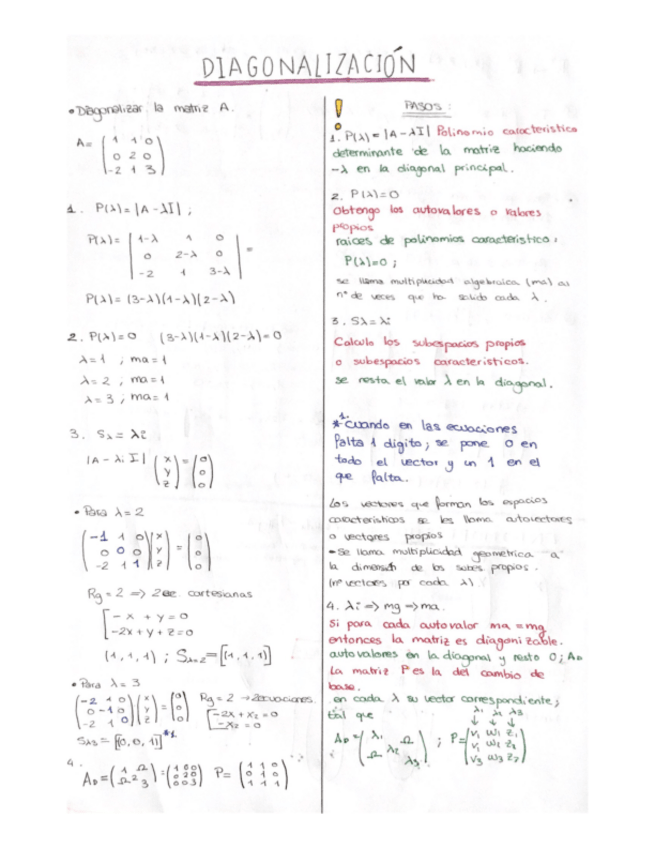 DIAGONALIZACIÓN
• Diagonalizar la matriz A.
A= ( 1 1 0
0 2 0
-2 1 3 )
1. P(λ)= |A - λI| ;
P(λ)= | 1-λ 1 0
0 2-λ 0
-2 1 3-λ | =
P(λ)= (3-λ)(1-λ)(2-λ)
2. P(λ)=0 (3-λ)(1-λ)(2-λ)=0
λ=1 ; ma=1
λ=2 ; ma=1
λ=3 ; ma=1
3. Sλ = λ2
|A - λi I| (x y z) = (0 0 0)
• Para λ=2
( -1 1 0
0 0 0
-2 1 1 ) (x y z) = (0 0 0)
Rg=2 => 2 ec cartesianas
[ -x + y = 0
-2x + y + z = 0
(1,1,1) ; Sλ=2 = [(1,1,1)]
• Para λ=3
( -2 1 0
0 -1 0
-2 1 0 ) (x y z) = (0 0 0) Rg=2 → 2 ecuaciones
[ -2x + x2 = 0
-x2 = 0
Sλ3 = [(0,0,1)] *1
4.
AD = ( 1 Ω
Ω 2 3 ) = ( 1 0 0
0 2 0
0 0 3 ) P= ( 1 1 0
0 1 0
1 1 1 )
! PASOS :
1. P(λ) = |A - λI| Polinomio característico
determinante de la matriz haciendo
-λ en la diagonal principal.
2. P(λ)=0
Obtengo los autovalores o valores
propios
raíces de polinomios característico,
P(λ)=0 ;
se llama multiplicidad algebraica (ma) al
nº de veces que ha salido cada λ.
3. Sλ = λi
Calculo los subespacios propios
o subespacios característicos.
se resta el valor λ en la diagonal.
*1. Cuando en las ecuaciones
falta 1 dígito; se pone 0 en
todo el vector y un 1 en el
que falta.
Los vectores que forman los espacios
característicos se les llama autovectores
o vectores propios
• Se llama multiplicidad geométrica a
la dimensión de los subes. propios.
(nº vectores por cada λ).
4. λi => mg => ma.
Si para cada autovalor ma = mg
entonces la matriz es diagonizable.
autovalores en la diagonal y resto 0; AD
La matriz P es la del cambio de
base.
en cada λ su vector correspondiente;
tal que
λ1 λ2 λ3
↓ ↓ ↓
AD = ( λ1 Ω
λ2
Ω λ3 ) ; P= ( V1 W1 Z1
V1 W2 Z2
V3 W3 Z2 )